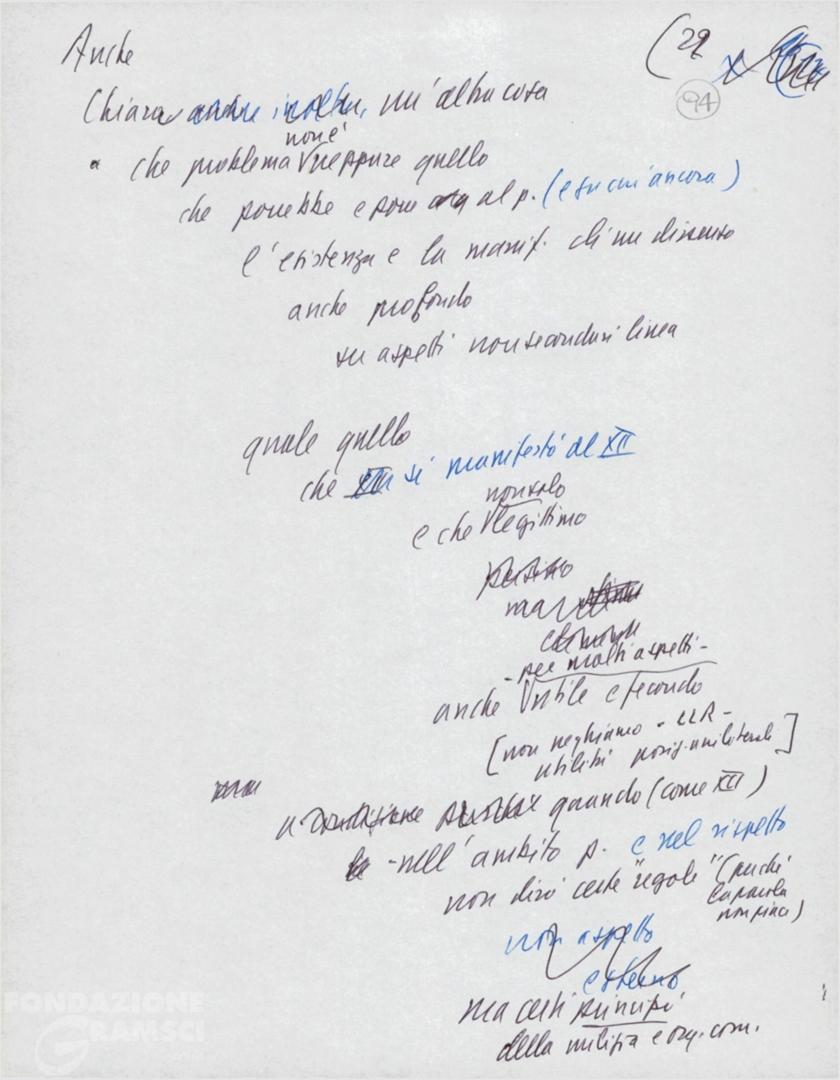 Anche
(29
94
Chiara inoltre, un'altra cosa
non è
che problema neppure quello
che porrebbe e pone al p. (e su cui ancora)
l'esistenza e la manif. di un dissenso
anche profondo
su aspetti non secondari linea
quale quello
che si manifestò al XII
non solo
e che legittimo
ma
- per molti aspetti -
anche utile e fecondo
[non neghiamo - LLR -
utilità posiz. unilaterale]
quando (come XII)
- nell'ambito p. e nel rispetto
non dirò certe "regole" (perché
la parola
non piace)
non aspetto
esterno
ma certi principi
della milizia e org. com.
FONDAZIONE
GRAMSCI